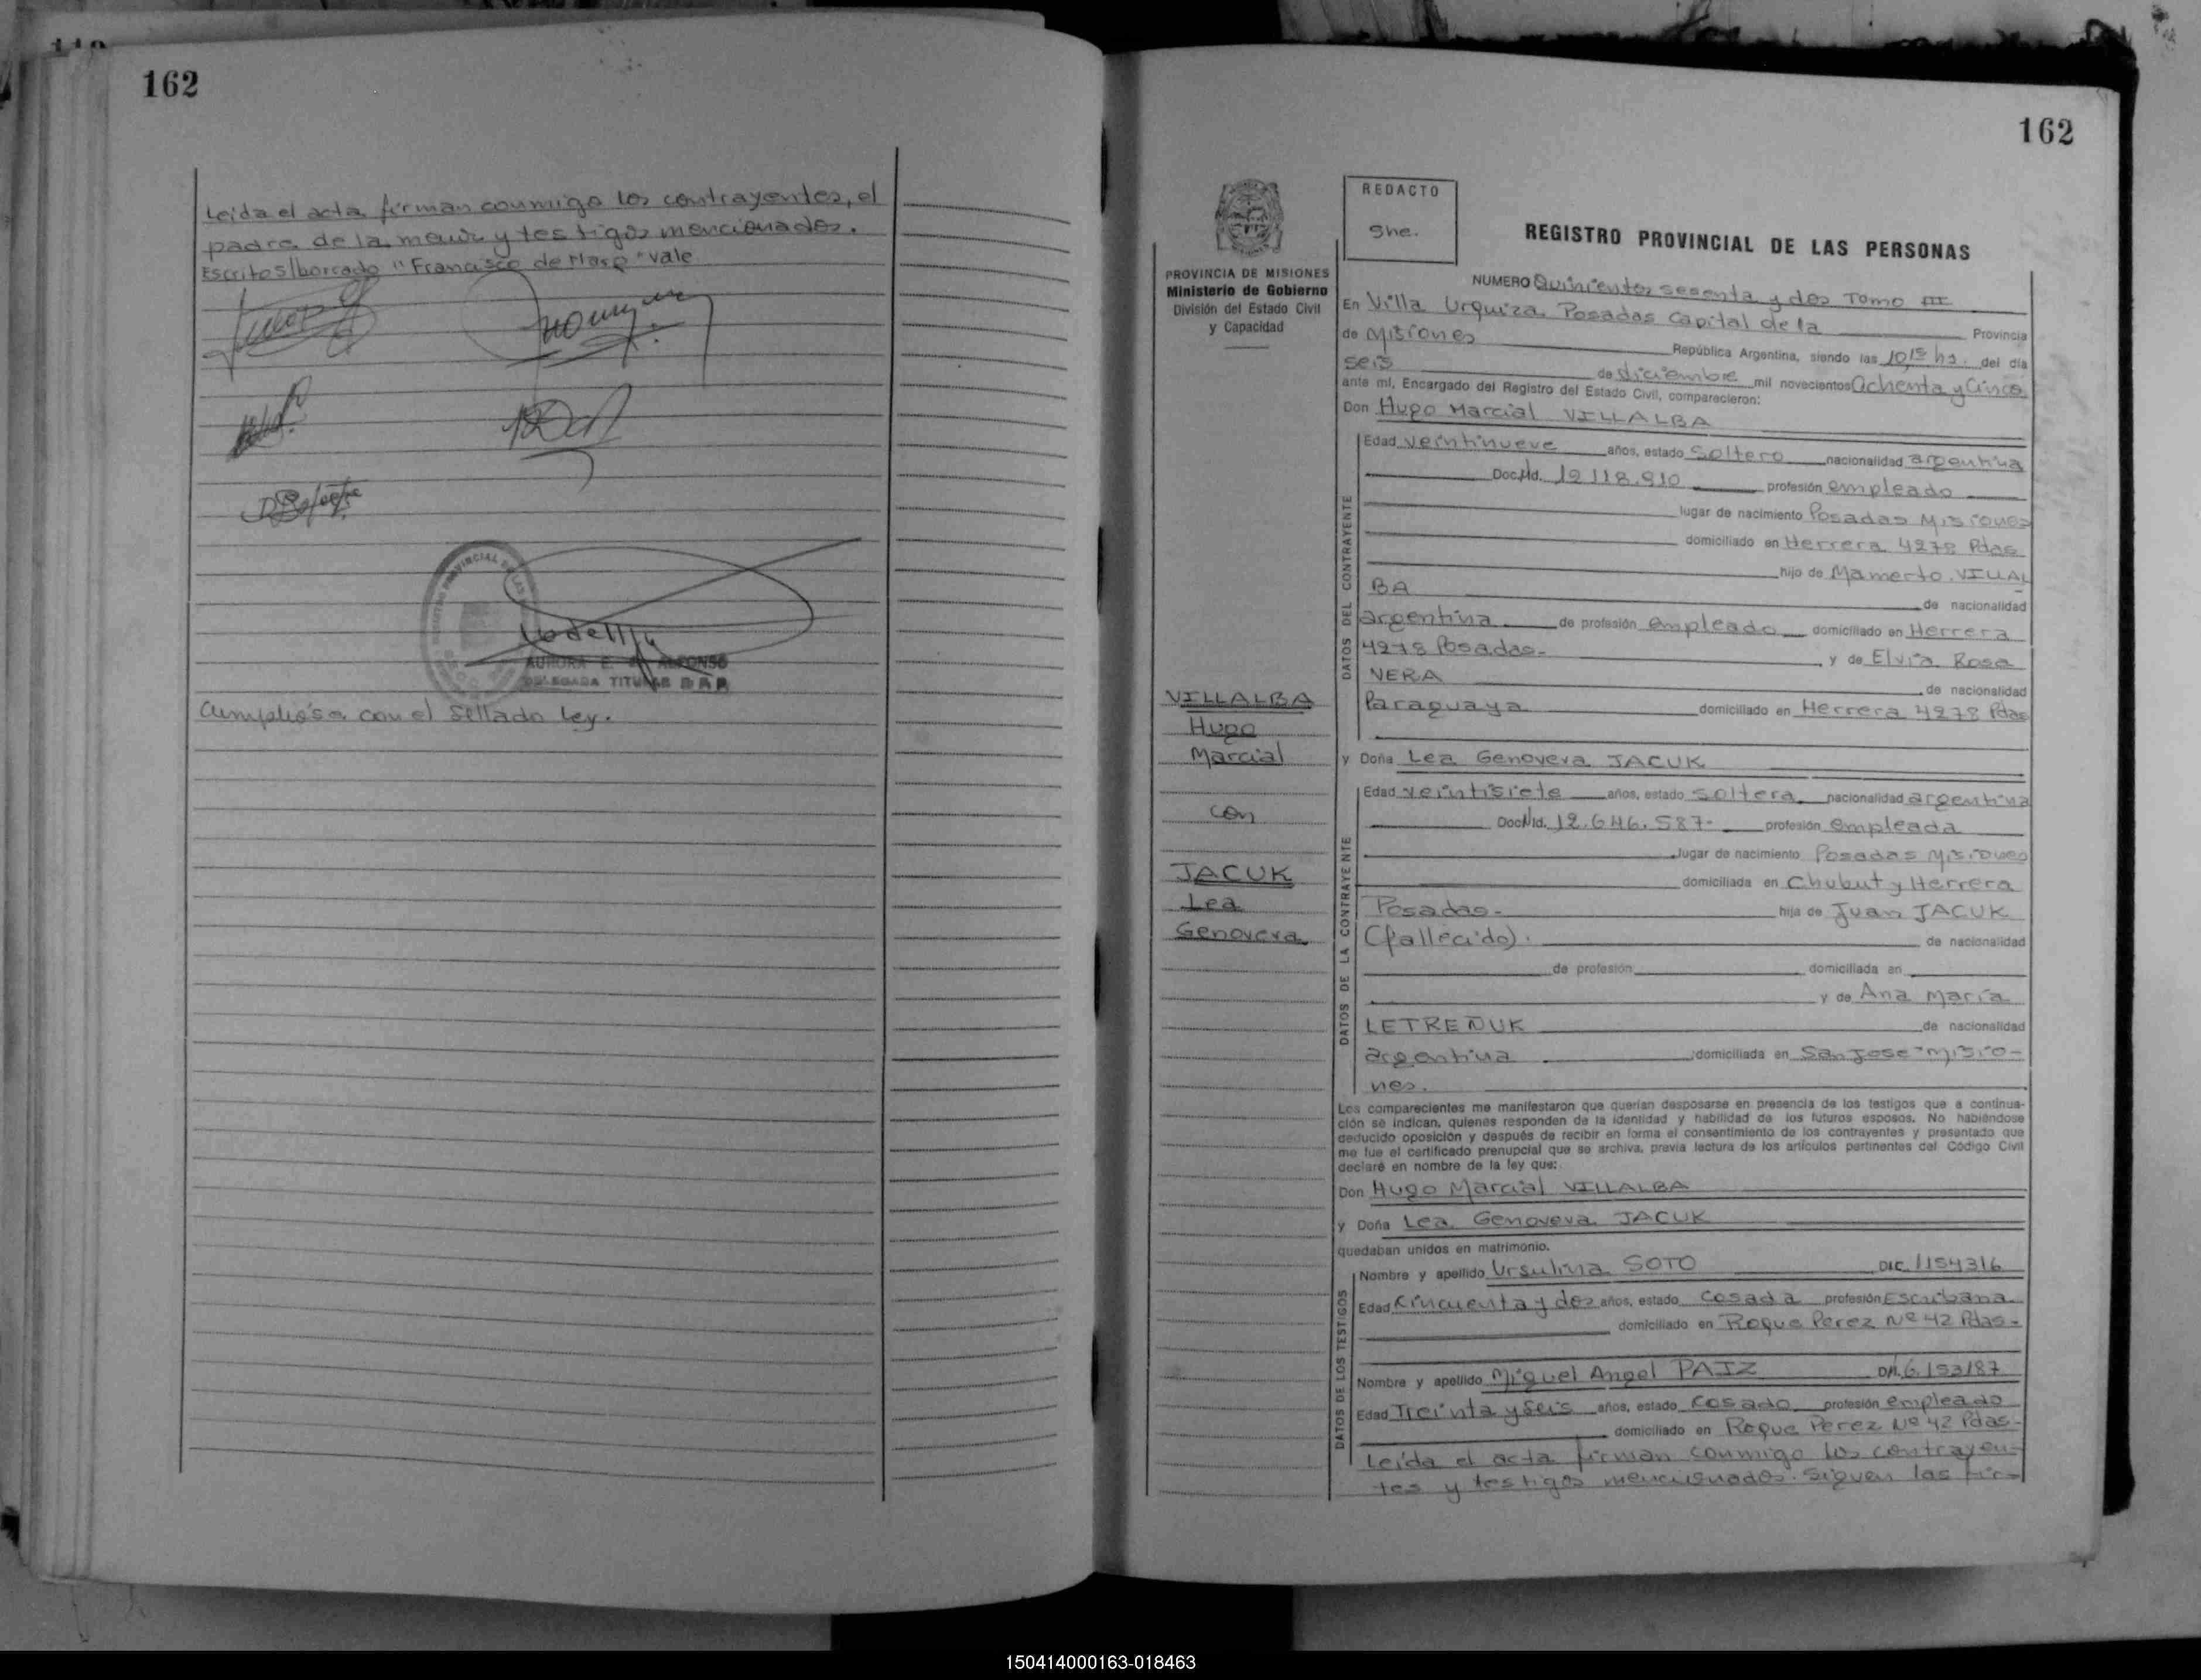 162
Leida el acta firman conmigo los contrayentes, el
padre de la menor y testigos mencionados.
Escrito s/borrado "Francisco de Haro" vale
AURORA E. de ALFONSO
DELEGADA TITULAR
Cumplióse con el Sellado Ley.
162
REDACTO
She.
REGISTRO PROVINCIAL DE LAS PERSONAS
PROVINCIA DE MISIONES
Ministerio de Gobierno
División del Estado Civil
y Capacidad
NUMERO Quinientos sesenta y dos Tomo III
En Villa Urquiza Posadas Capital de la Provincia
de Misiones República Argentina, siendo las 10,15 hs. del día
seis de diciembre mil novecientos Ochenta y Cinco
ante mí, Encargado del Registro del Estado Civil, comparecieron:
Don Hugo Marcial VILLALBA
DATOS DEL CONTRAYENTE
Edad veintinueve años, estado Soltero nacionalidad argentina
Doc. Nd. 12.118.910 profesión empleado
lugar de nacimiento Posadas Misiones
domiciliado en Herrera 4278 Pdas
hijo de Mamerto VILLAL
BA de nacionalidad
argentina de profesión empleado domiciliado en Herrera
4278 Posadas- y de Elvia Rosa
NERA de nacionalidad
Paraguaya domiciliado en Herrera 4278 Pdas
VILLALBA
Hugo
Marcial
con
JACUK
Lea
Genoveva
y Doña Lea Genoveva JACUK
DATOS DE LA CONTRAYENTE
Edad veintisiete años, estado Soltera nacionalidad argentina
Doc Nd. 12.646.587- profesión empleada
lugar de nacimiento Posadas Misiones
domiciliada en Chubut y Herrera
Posadas- hija de Juan JACUK
(fallecido). de nacionalidad
de profesión domiciliada en
y de Ana María
LETREÑUK de nacionalidad
argentina domiciliada en San Jose-Misio-
nes.
Los comparecientes me manifestaron que querían desposarse en presencia de los testigos que a continua-
ción se indican, quienes responden de la identidad y habilidad de los futuros esposos. No habiéndose
deducido oposición y después de recibir en forma el consentimiento de los contrayentes y presentado que
me fue el certificado prenupcial que se archiva, previa lectura de los artículos pertinentes del Código Civil
declaré en nombre de la ley que:
Don Hugo Marcial VILLALBA
y Doña Lea Genoveva JACUK
quedaban unidos en matrimonio.
DATOS DE LOS TESTIGOS
Nombre y apellido Ursulina SOTO D/C. 1154316
Edad Cincuenta y dos años, estado Casada profesión Escribana
domiciliado en Roque Perez Nº 42 Pdas-
Nombre y apellido Miguel Angel PAIZ DNI. 6.153187
Edad Treinta y Seis años, estado casado profesión empleado
domiciliado en Roque Perez Nº 42 Pdas-
Leida el acta firman conmigo los contrayen-
tes y testigos mencionados. Siguen las fir-
150414000163-018463